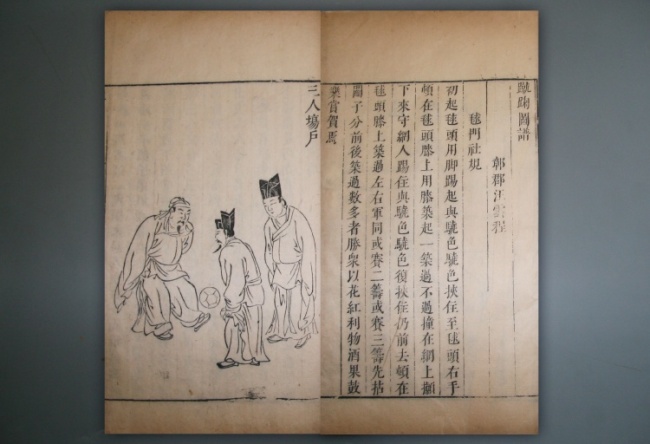 蹴踘圖譜
鄣郡汪雲程
毬門社規
初起毬頭用脚踢起與驍色驍色挾住至毬頭右手
頓在毬頭膝上用膝築起一築過不過撞在網上攧
下來守網人踢住與驍色復挾住仍前去頓在
毬頭膝上築過左右軍同或賽二籌或賽三籌先拈
鬮子分前後築過數多者勝衆以花紅利物酒果鼓
樂賞賀焉
三人場戶